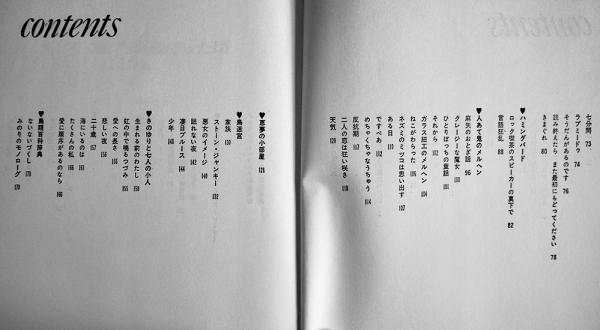 contents
七分間 73
ラブミードウ? 74
そうだんがあるのです 76
読み終えたら また最初にもどってください 78
きまぐれ 80
♥ハミングバード
ロック喫茶のスピーカーの真下で 82
言語狂乱 88
♥人あて鬼のメルヘン
麻矢のおとぎ話 96
クレージーな魔女 100
ひとりぼっちの童話 101
それから 102
ガラス細工のメルヘン 104
ねこがわらった 105
ネズミのミツコは思い出す 107
ある日 111
ですぺあ 112
めちゃくちゃなうちゅう 114
反抗期 117
二人の恋は狂い咲き 118
天気 120
♥悪夢の小部屋 121
♥鳥迷宮
家族 130
ストーン・ジャンキー 132
悪女のイメージ 140
眠れない夜 142
凄目ブルース 144
少年 148
♥きのゆりと七人の小人
生まれる前のわたし 150
虹の中で鳴るつづみ 155
愛への長さ 156
悲しい話 156
二十歳 157
海にいるのは 161
たくさんの私の 166
愛に順序があるのなら 168
♥鳥類百科辞典
ないないづくし 170
みのりのモノローグ 170